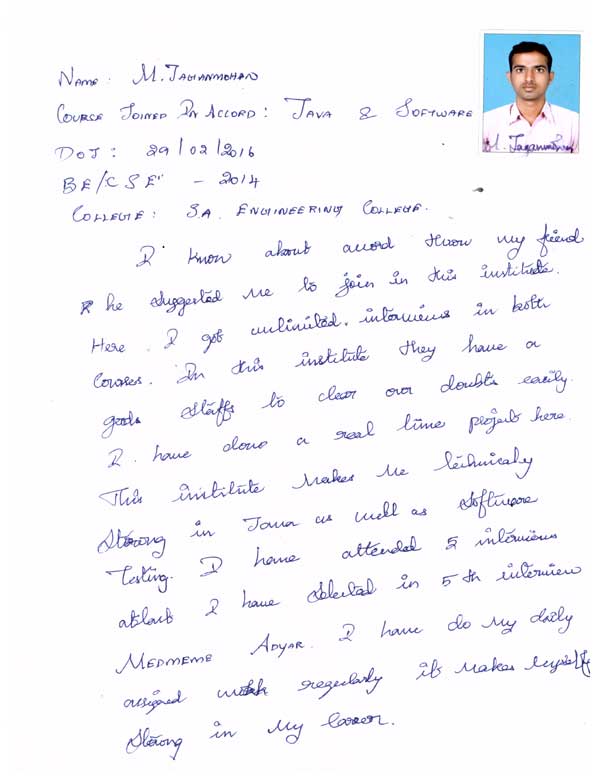 NAME : M. JAGANMOHAN
COURSE JOINED IN ACCORD : JAVA & SOFTWARE
DOJ : 29/02/2016
BE/CSE - 2014
COLLEGE : S.A. ENGINEERING COLLEGE.
I know about accord throw my friend
he suggested me to join in this institute.
Here I got unlimited. interviews in both
Courses. In this institute they have a
good staffs to clear our doubts easily.
I have done a real time project here.
This institute makes me technically
Strong in Java as well as Software
Testing. I have attended 5 interviews
atlast I have selected in 5th interview
MEDMEME ADYAR. I have do my daily
assigned work regularly it makes myself
Strong in my career.
M. Jaganmohan